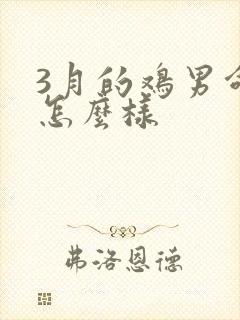 3月的鸡男命
怎麼樣
弗洛恩德